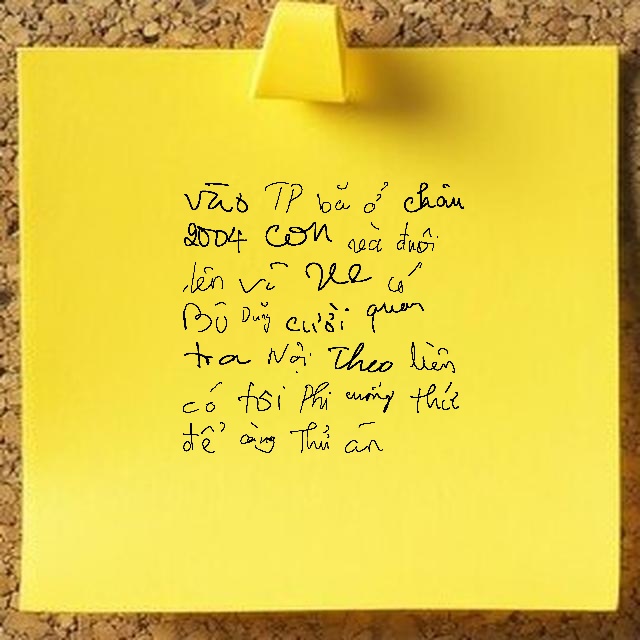 vào TP bà ở châu
2004 con và đuôi
lên vì ve có
Bộ Dũng cười quan
tra Nội Theo liên
có tôi Phi cuống thức
để càng Thủ án